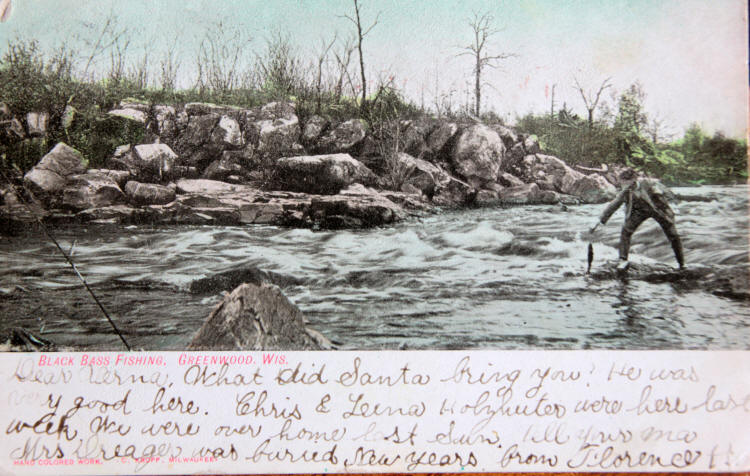 BLACK BASS FISHING, GREENWOOD, WIS.
Dear Verna, What did Santa bring you? He was
very good here. Chris & Leena were here last
week. We were over home last Sun. Tell your ma
Mrs was buried New years from Florence
HAND COLORED WORK. C. KROPP, MILWAUKEE